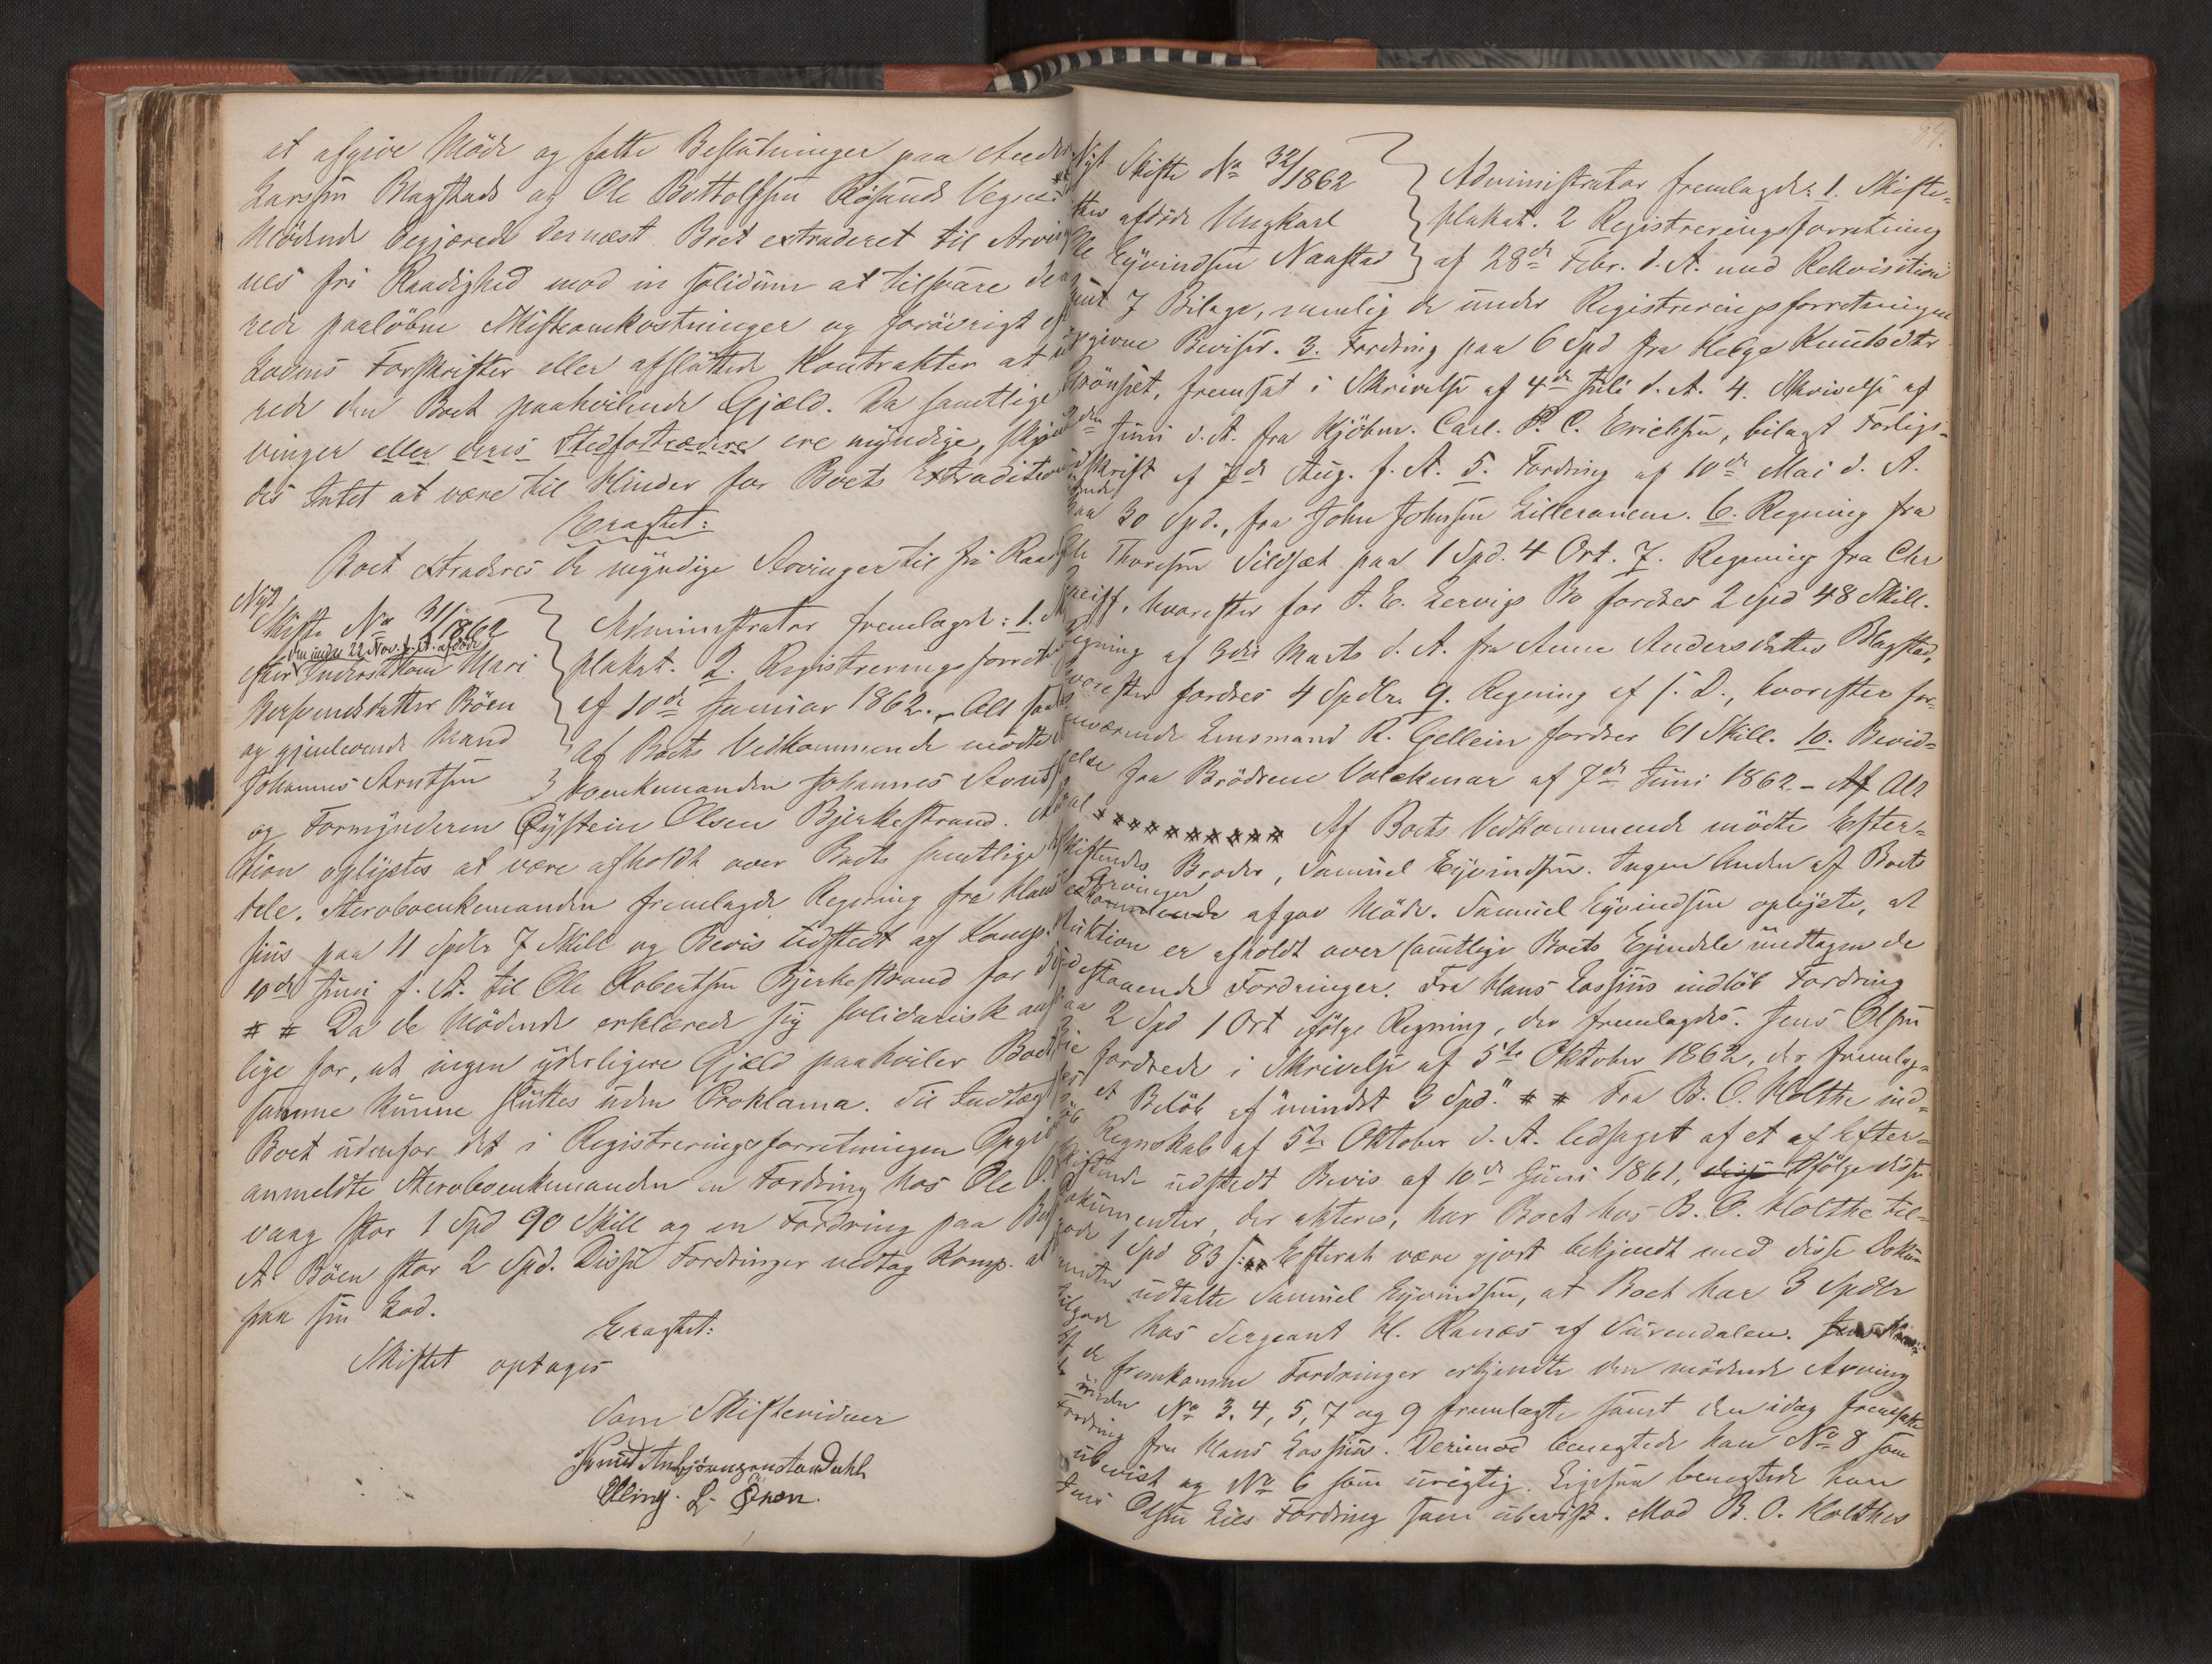 at afgive Möde og fatte Beslutninger paa Anders
Larssøn Blagstads og Ole Bottolfsøn Rösunds Vegne.
Mödende begjærede dernæst Boet extraderet til Arvin
nes fri Raadighed mod in solidum at tilsvare de
rede paalöbne Skifteomkostninger og forövrigt
Lovens Forskrifter eller afsluttede Kontrakter at
rede den Boet paahvilende Gjæld. Da samtlige
vinger eller deres Stedfortrædere ere myndige, skjön
des Intet at være til Hinder for Boets Extradition
Eragtet:
Boet extraderes de myndige Arvinger til fri Raa
Nyt
Skifte No 31/1862
den under 22 Nov. f. A. afdöde
efter Inderstkone Mari
Bersvendsdatter Böen
og gjenlevende Mand
Johannes Arntsøn
Administrator fremlagde: 1.
plakat. 2. Registreringsforret
af 10de Januar 1862. – Alt
Af Boets Vedkommende mödte
Boenkemanden Johannes Arnts
og Formynderen Øystein Olsen Bjerkestrand.
ktion oplystes at være afholdt over Boets samtlige
dele. Stervboenkemanden fremlagde Regning fra Hans
sius paa 11 Spdlr 7 Skill og Bevis udstedt af Komp.
10de Juni f. A. til Ole Robertsøn Bjerkestrand for
** Da de Mödende erklærede sig solidarisk
lige for, at ingen yderligere Gjæld paahviler Boet
samme kunne sluttes uden Proklama. Til Indtægt
Boet udenfor det i Registreringsforretningen Opgi
anmeldte Stervboenkemanden en Fordring hos Ole
vaag stor 1 Spd 90 Skill og en Fordring paa
A. Böen stor 2 Spd. Disse Fordringer vedtog Komp. at
paa sin Lod.
Eragtet:
Skiftet optages
Som Skiftevidner
Knud
Elling L.
84.
Nyt Skifte No 32/1862
efter afdöde Ungkarl
Ole Eyvindsøn Naastad
Administrator fremlagde: 1. Skifte-
plakat. 2 Registreringsforretning
af 28de Febr. d. A. med Rekvisition
samt 7 Bilage, nemlig de under Registreringsforretningen
givne Beviser. 3. Fordring paa 6 Spd fra Helge Knudsdtr
Grönset, fremsat i Skrivelse af 4de Juli d. A. 4. Skrivelse af
Juni d. A. fra Kjöbm. Carl. P. C. Erichsen, bilagt Forligs-
skrift af 7de Aug. f. A. 5. Fordring af 10de Mai d. A.
paa 30 Spd., fra John Johnsøn Lilleranem. 6. Regning fra
Ole Thoresøn Sildset paa 1 Spd. 4 Ort. 7. Regning fra Chr
hvorefter for A. E. Lervigs Bo fordres 2 Spd 48 Skill.
Regning af 3die Marts d. A. fra Anne Andersdatter Blagstad,
hvorefter fordres 4 Spdlr. 9. Regning af s. D., hvorefter for-
værende Lensmand R. Gellein fordrer 61 Skill. 10. Bevid-
nelse fra Brödrene Volckmar af 7de Juni 1862. – Af Alt
saal ********** Af Boets Vedkommende mödte Efter-
skiftendes Broder, Samuel Eyvindsøn. Ingen Anden af Boets
Arvinger
Vedkommende afgav Möde. Samuel Eyvindsøn oplyste, at
Auktion er afholdt over samtlige Boets Ejendele undtagen de
udestaaende Fordringer. Fra Hans Lossius indlöb Fordring
paa 2 Spd 1 Ort ifölge Regning, der fremlagdes. Jens Olsøn
Lie fordrede i Skrivelse af 5te Oktober 1862, der fremlag-
des et Belöb af "mindst 3 Spd." ** Fra B. O. Holthe ind-
löb Regnskab af 5te Oktober d. A. ledsaget af et af Efter-
skiftende udstedt Bevis af 10de Juni 1861, Ifölge disse
Dokumenter, der akteres, har Boet hos B. O. Holthe til-
gode 1 Spd 83 s. ** Efterat være gjort bekjendt med disse Doku-
menter udtalte Samuel Eyvindsøn, at Boet har 3 Spdlr
tilgode hos Sergeant H. Ranæs af Surendalen.
Af de fremkomne Fordringer erkjendte den mödende Arving
de under No 3, 4, 5, 7 og 9 fremlagte samt den idag fremsatte
Fordring fra Hans Lossius. Derimod benegtede han No 8 som
ubevist og No 6 som urigtig. Ligesaa benegtede han
Jens Olsøn Lies Fordring som ubevist. Mod B. O. Holthes